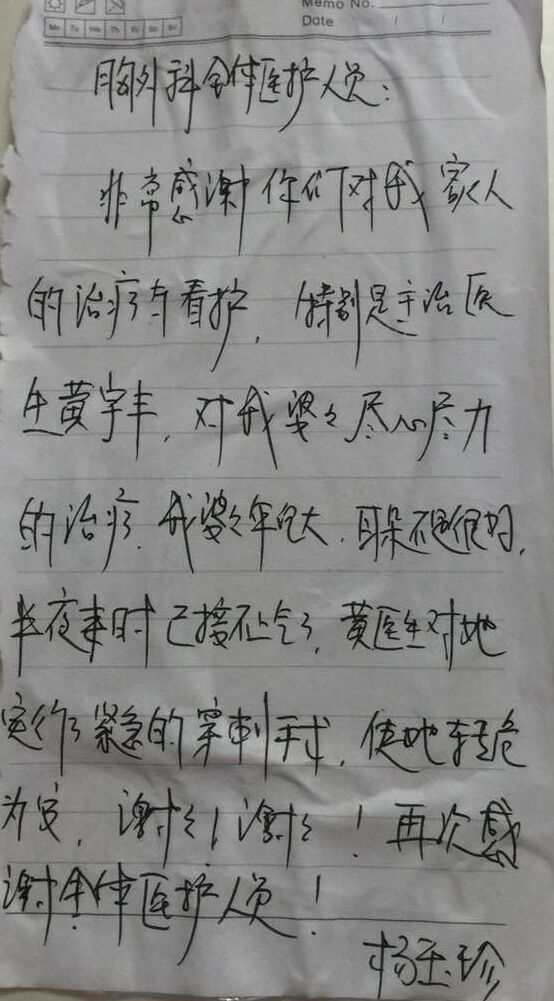 Memo No.
Date / /
Mo Tu We Th Fr Sa Su
胸外科全体医护人员:
非常感谢你们对我家人
的治疗与看护,特别是主治医
生黄宇丰,对我婆々尽心尽力
的治疗.我婆々年纪大.耳朵不是很好,
半夜来时已接不上气了,黄医生对她
实行了紧急的穿刺手术,使她转危
为安,谢々!谢々!再次感
谢全体医护人员!
杨玉珍